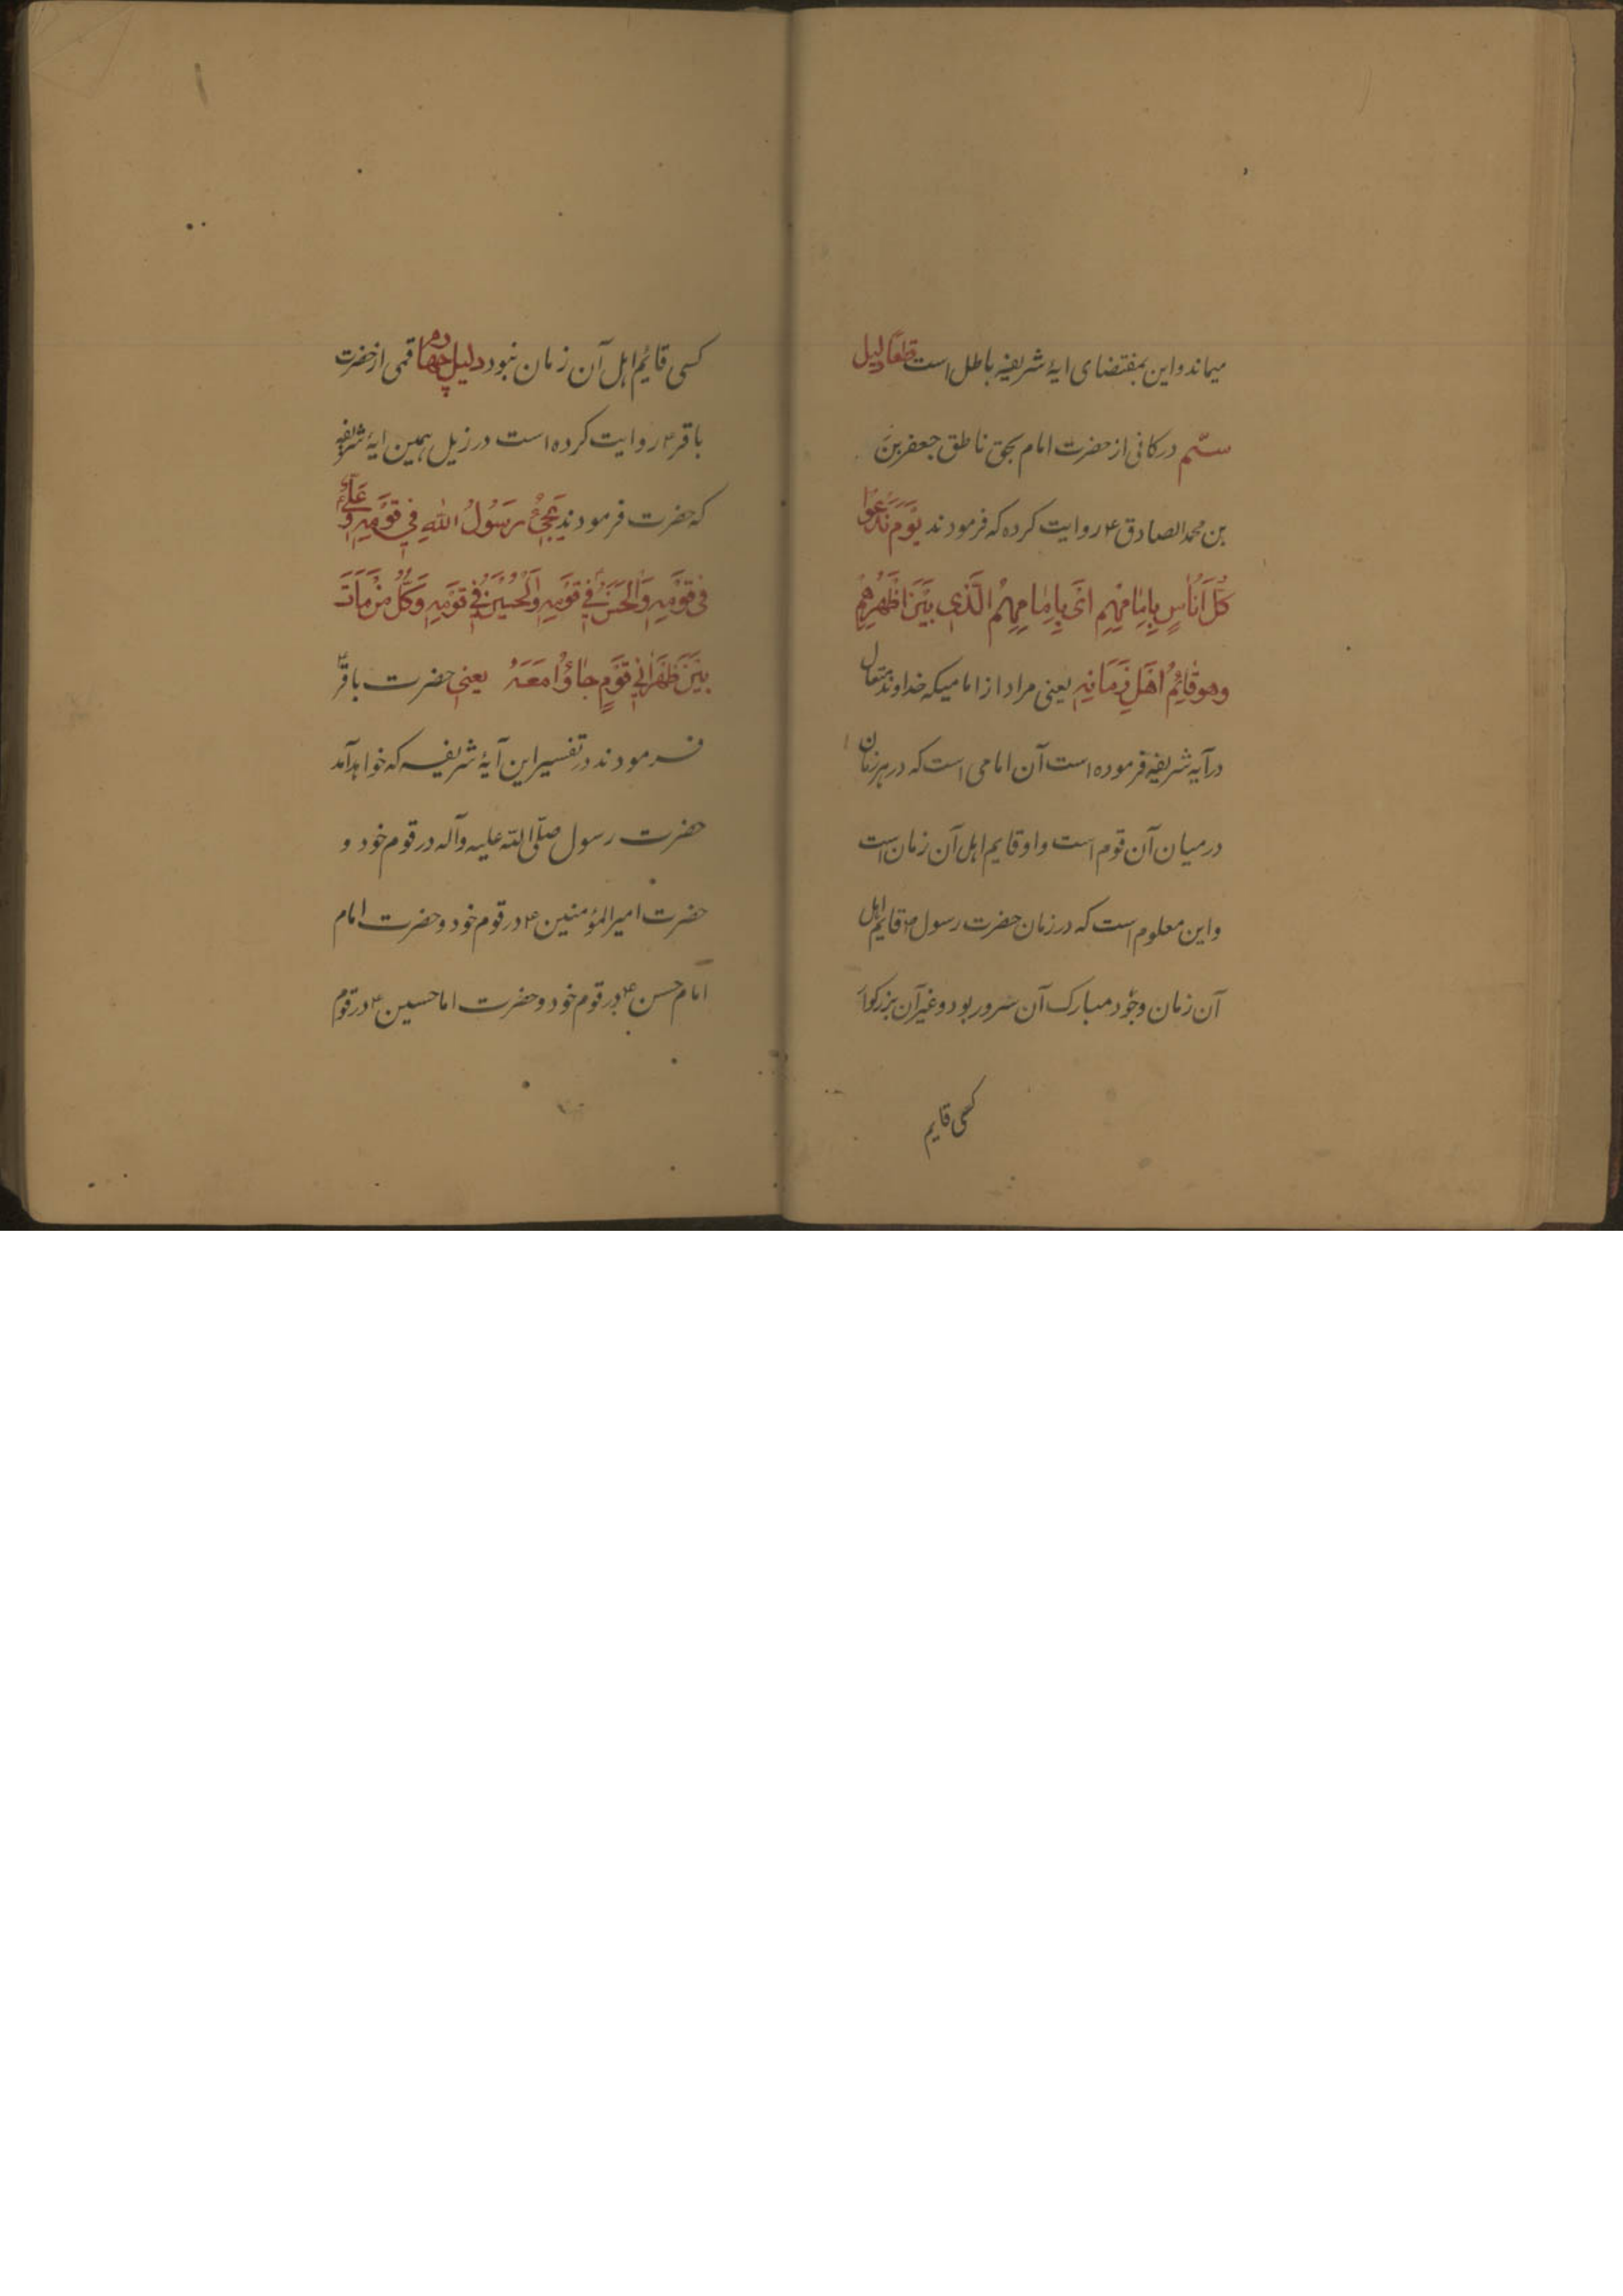 میماند و این بمقتضای ایهٔ شریفه باطل است قطعا دلیل
سیّم در کافی از حضرت امام بحق ناطق جعفر بن
بن محمد الصادق ع روایت کرده که فرمودند یَوْمَ نَدْعُوا
کُلَّ اُنَاسٍ بِاِمَامِهِمِ اَیْ بِاِمَامِهِمُ الَّذِی بَیْنَ اَظْهُرِهِمْ
وهو قَائِمُ اَهْلِ زَمَانِهِ یعنی مراد از امامیکه خداوند متعال
در آیه شریفه فرموده است آن امامی است که در هر زمان
در میان آن قوم است و او قایم اهل آن زمان است
و این معلوم است که در زمان حضرت رسول ص قایم اهل
آن زمان وجود مبارک آن سرور بود و غیر آن بزرکوار
کسی قایم
کسی قائم اهل آن زمان نبود دلیل چهارم قمی از حضرت
باقر ع روایت کرده است در زیل همین ایهٔ شریفه
که حضرت فرمودند یَجِیْءُ رَسُولُ اللهِ فِی قَوْمِهِ وَ عَلِیٌّ
فِی قَوْمِهِ وَالْحَسَنُ فِی قَوْمِهِ وَالْحُسَیْنُ فِی قَوْمِهِ وَ کُلُّ مَنْ مَاتَ
بَیْنَ ظَهْرَانِی قَوْمٍ جَاؤُا مَعَهُ یعنی حضرت باقر ع
فرمودند در تفسیر این آیهٔ شریفه که خواهد آمد
حضرت رسول صلّی الله علیه وآله در قوم خود و
حضرت امیر المؤمنین ع در قوم خود و حضرت امام
امام حسن ع در قوم خود و حضرت اماحسین ع در قوم